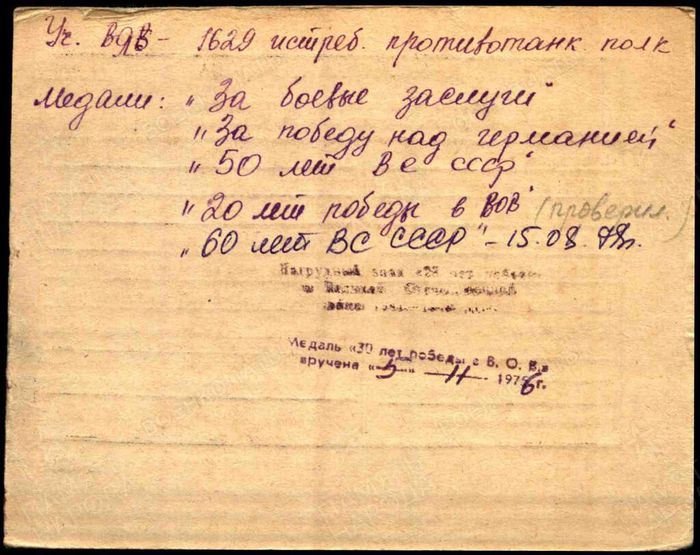 Уч. ВОВ - 1629 истреб. противотанк. полк
Медали: "За боевые заслуги"
"За победу над Германией"
"50 лет ВС СССР"
"20 лет победы в ВОВ" (проверил.)
"60 лет ВС СССР" - 15.08.78г.
Нагрудный знак «25 лет победы
в Великой Отечественной
Медаль «30 лет победы в В. О. В.»
вручена «5» 11 1976 г.